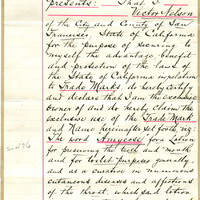 presents: That I
Victor Nelson
of the City and County of San
Francisco, State of California
for the purpose of securing to
myself the advantage, benefit
and protection of the laws of
the State of California in relation
to Trade Marks, do hereby certify
and declare that I am the exclusive
owner of and do hereby claim the
exclusive use of the Trade Mark
and Name hereinafter set forth, viz:
The word for a lotion
for preserving the teeth and mouth
and for toilet purposes generally,
and as a curative in numerous
cutaneous diseases and affections
of the throat, which said lotion